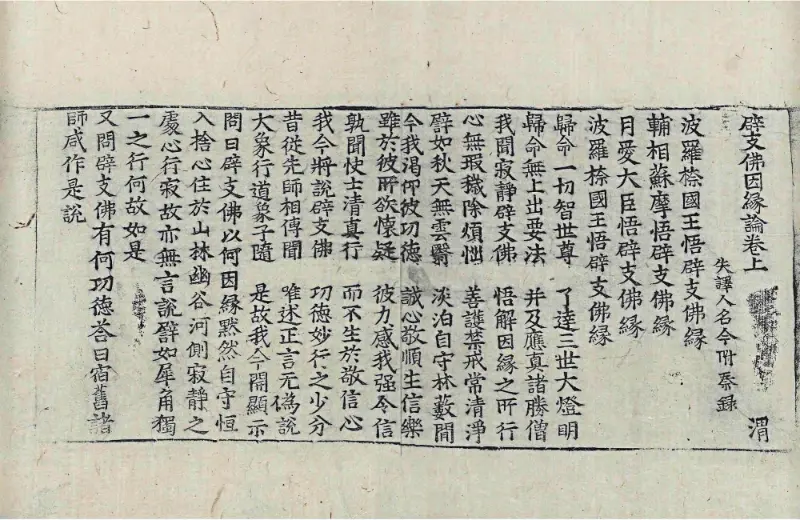 辟支佛因緣論卷上　渭
失譯人名今附秦錄
波羅㮈國王悟辟支佛緣
輔相蘇摩悟辟支佛緣
月愛大臣悟辟支佛緣
波羅㮈國王悟辟支佛緣
歸命一切智世尊　了達三世大燈明
歸命無上出要法　并及應真諸勝僧
我聞寂靜辟支佛　悟解因緣之所行
心無瑕穢除煩惱　善護禁戒常清淨
譬如秋天無雲翳　淡泊自守林藪間
今我渴仰彼功德　誠心敬順生信樂
雖於彼所欲懷疑　彼力感我强令信
孰聞快士清真行　而不生於敬信心
我今將說辟支佛　功德妙行之少分
昔從先師相傳聞　唯述正言无僞說
大象行道象子隨　是故我今開顯示
問曰辟支佛以何因緣默然自守恒
入捨心住於山林幽谷河側寂靜之
處心行寂故亦無言說譬如犀角獨
一之行何故如是
又問辟支佛有何功德荅曰宿舊諸
師咸作是說